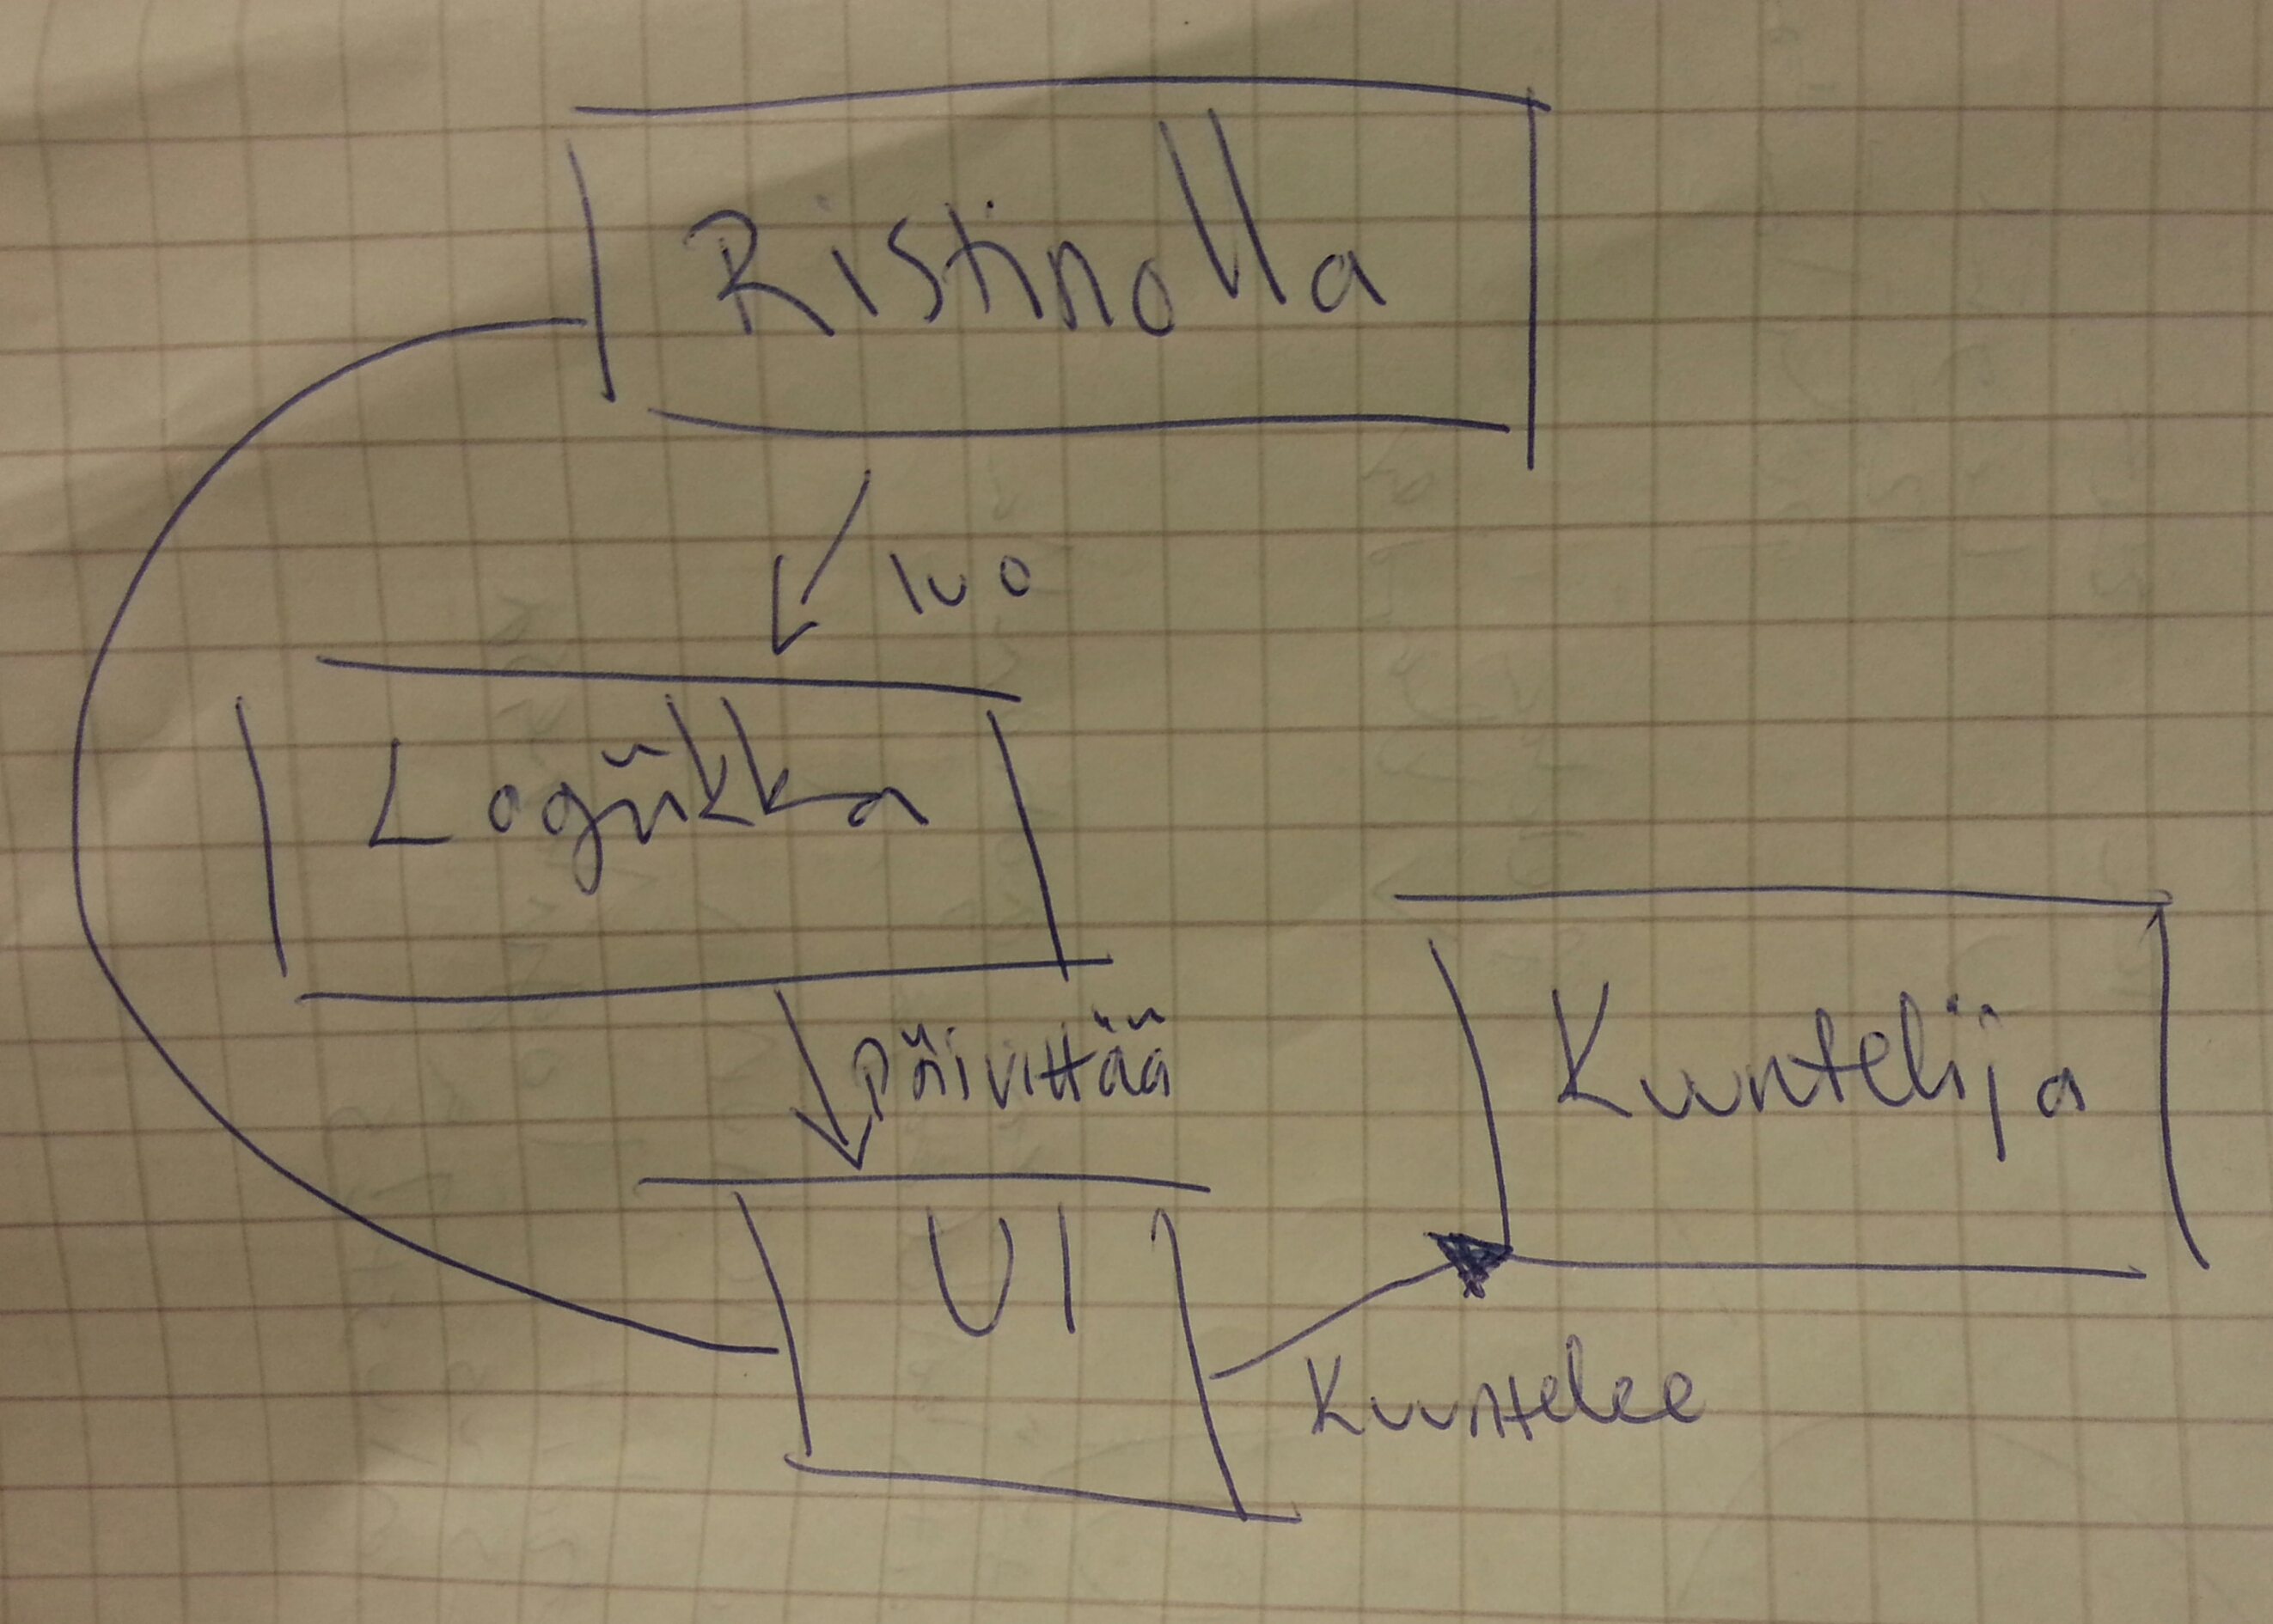 Ristinolla
luo
Logiikka
päivittää
Kuuntelija
UI
Kuuntelee